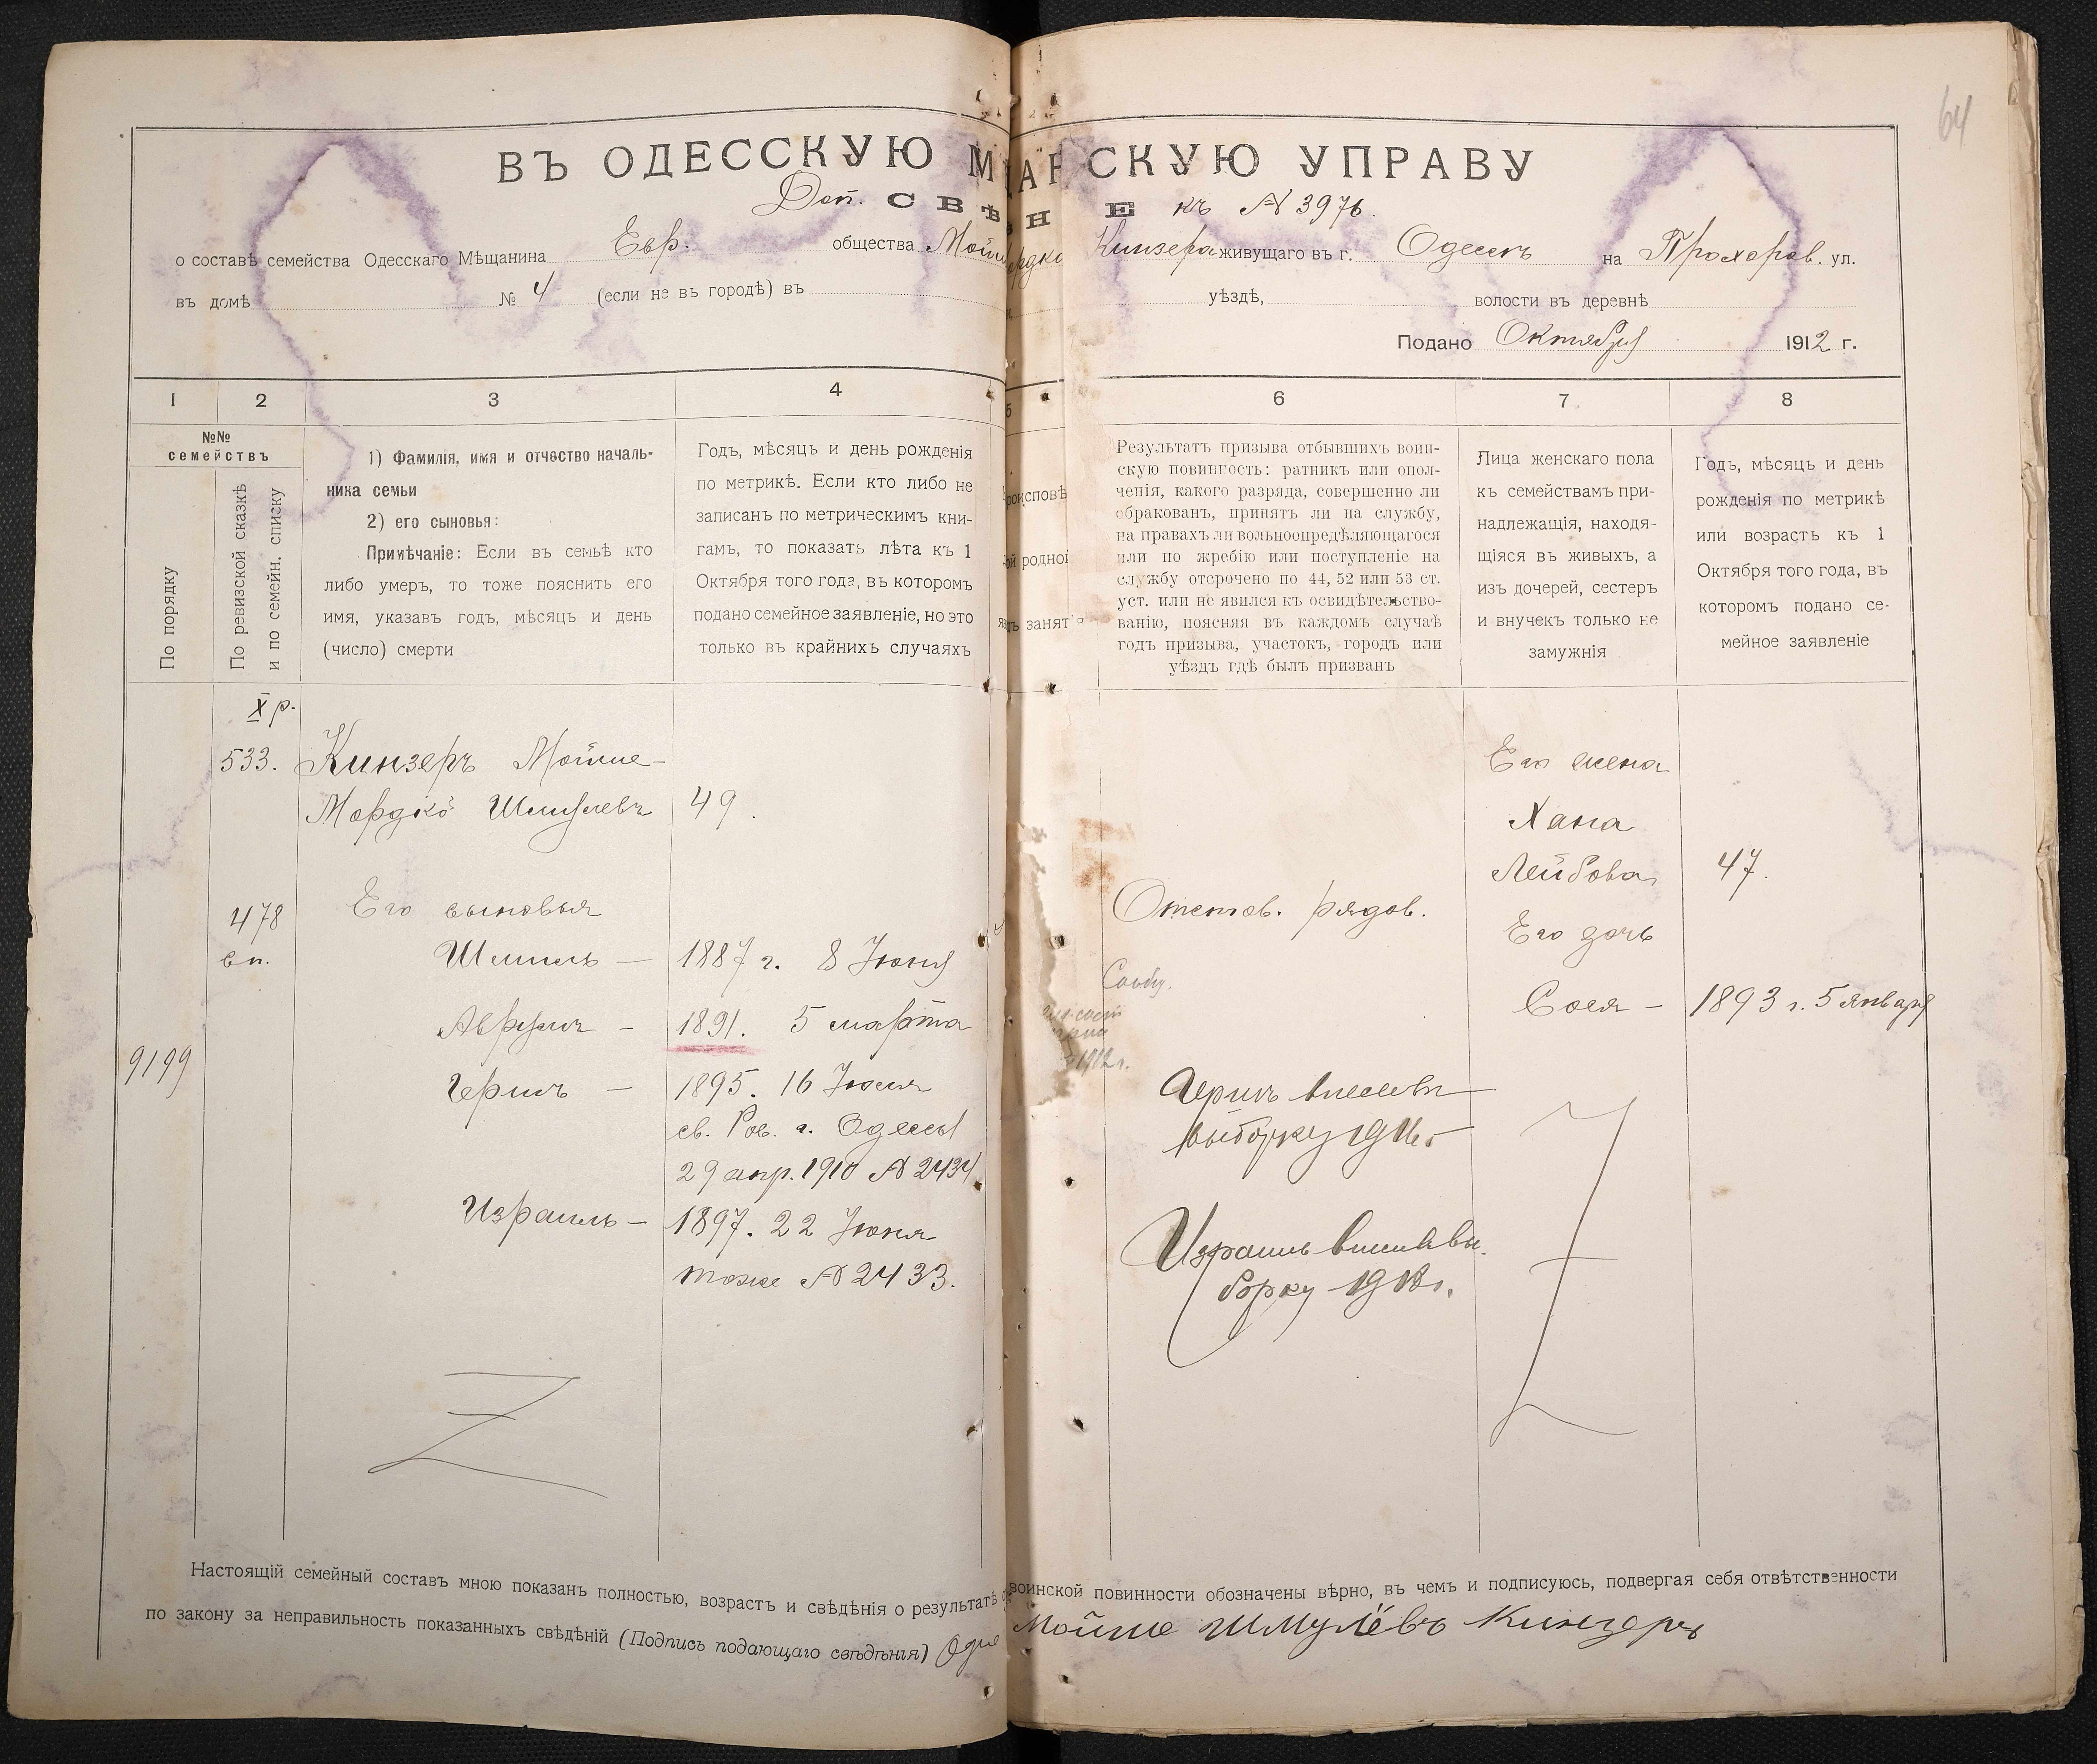 64
ВЪ ОДЕССКУЮ М ЩАН СКУЮ УПРАВУ
Доп. СВѢ Н Е къ № 3976.
о составѣ семейства Одесскаго Мѣщанина Евр. общества Мойш ордко Кинзера живущаго въ г. Одессѣ на Прохоров. ул.
въ домѣ № 4 (если не въ городѣ) въ уѣздѣ, волости въ деревнѣ
Подано Октября 1912 г.
1 2 3 4 5 6 7 8
№№
семействъ
По порядку
По ревизской сказкѣ
и по семейн. списку
1) Фамилія, имя и отчество началь-
ника семьи
2) его сыновья:
Примѣчаніе: Если въ семьѣ кто
либо умеръ, то тоже пояснить его
имя, указавъ годъ, мѣсяцъ и день
(число) смерти
Годъ, мѣсяцъ и день рожденія
по метрикѣ. Если кто либо не
записанъ по метрическимъ кни-
гамъ, то показать лѣта къ 1
Октября того года, въ которомъ
подано семейное заявленіе, но это
только въ крайнихъ случаяхъ
роисповѣ
родной
занятія
Результатъ призыва отбывшихъ воин-
скую повинность: ратникъ или опол-
ченія, какого разряда, совершенно ли
обракованъ, принятъ ли на службу,
на правахъ ли вольноопредѣляющагося
или по жребію или поступленіе на
службу отсрочено по 44, 52 или 53 ст.
уст. или не явился къ освидѣтельство-
ванію, поясняя въ каждомъ случаѣ
годъ призыва, участокъ, городъ или
уѣздъ гдѣ былъ призванъ
Лица женскаго пола
къ семействамъ при-
надлежащія, находя-
щіяся въ живыхъ, а
изъ дочерей, сестеръ
и внучекъ только не
замужнія
Годъ, мѣсяцъ и день
рожденія по метрикѣ
или возрастъ къ 1
Октября того года, въ
которомъ подано се-
мейное заявленіе
X р.
533. Кинзеръ Мойше-
Мордко Шмулевъ 49.
478 Его сыновья
вп. Шмиль — 1887 г. 8 Іюня
Аврумъ — 1891. 5 марта
9199
Гершъ — 1895. 16 Іюля
св. Рав. г. Одессы
29 апр. 1910 № 2434
Израиль — 1897. 22 Іюня
тоже № 2433.
Отстав. рядов.
1912 г.
Гершъ внесенъ
выборку 1916 г
Израиль внесенъ вы-
борку 1918 г.
Его жена
Хана
Лейбова 47.
Его дочь
Сося — 1893 г. 5 января
Настоящій семейный составъ мною показанъ полностью, возрастъ и свѣдѣнія о результатѣ воинской повинности обозначены вѣрно, въ чемъ и подписуюсь, подвергая себя отвѣтственности
по закону за неправильность показанныхъ свѣдѣній (Подпись подающаго свѣдѣнія) Мойше Шмулёвъ Кинзеръ